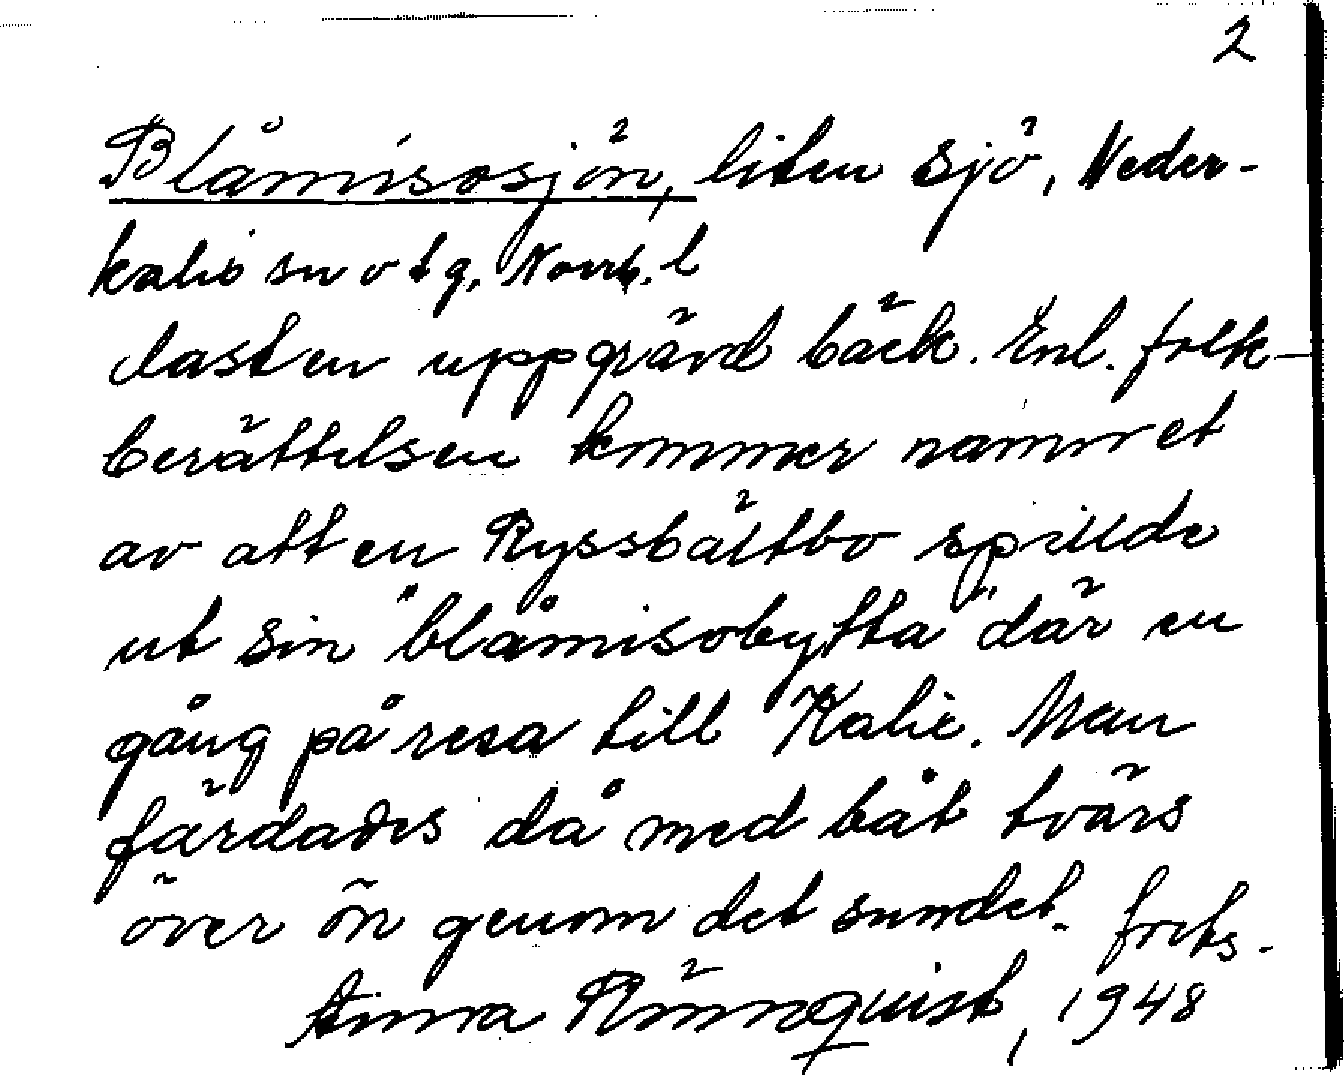 2
Blåmisosjön, liten sjö, Neder-
kalix sn o tg, Norrb. l
dasten uppgrävd bäck. Enl. folk-
berättelsen kommer namnet
av att en Ryssbältbo spillde
ut sin "blåmisobytta" där en
gång på resa till Kalix. Man
färdades då med båt tvärs
över ön genom det sundet. forts.
Anna Rönnquist, 1948